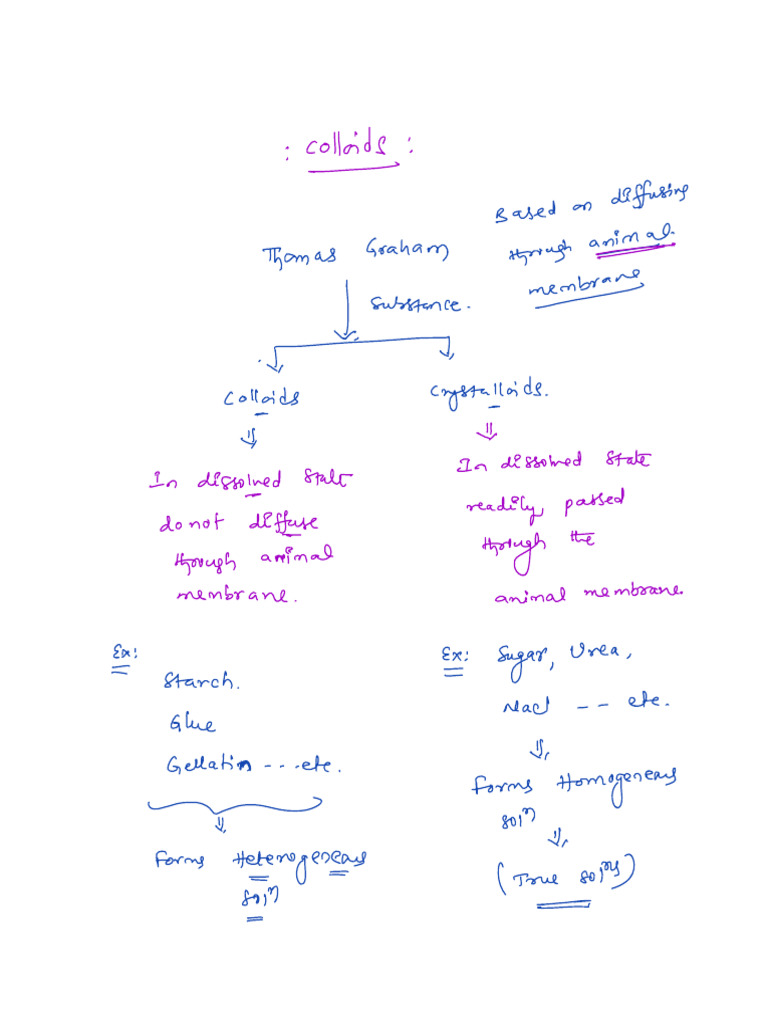 : Colloids :
Based on diffusing
through animal
membrane
Thomas Graham
Substance.
Colloids
Crystalloids.
In dissolved state
do not diffuse
through animal
membrane.
In dissolved state
readily, passed
through the
animal membrane.
Ex:
Starch.
Glue
Gellatin ---.etc.
Forms Heterogeneous
solⁿ
Ex: Sugar, Urea,
Nacl -- etc.
Forms Homogeneous
solⁿ
(True solⁿs)